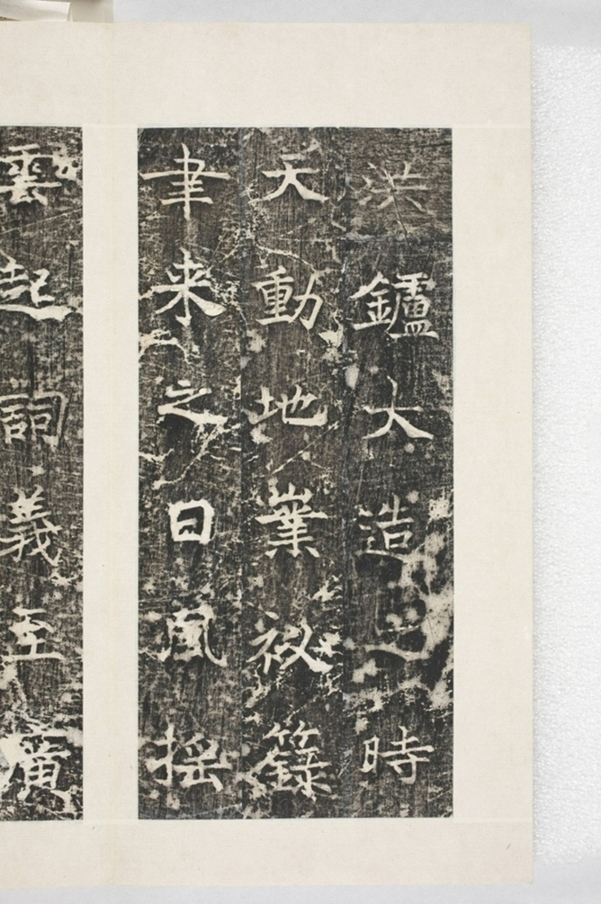 洪鑪大造之時
天動地業祕籙
聿来之日風揺
雲起詞義至廣